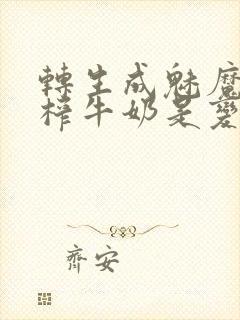 轉生成魅魔
榨牛奶是變
齊安